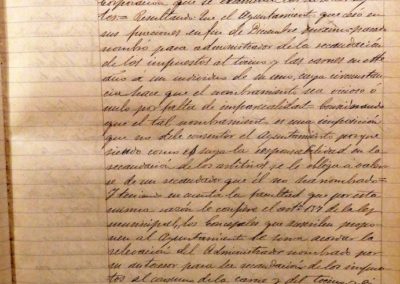 corporacion que se
Resultando Que el Ayuntamiento que cesó en
sus funciones en fin de Diciembre proximo pasado
nombró para administrador de la recaudacion
de los impuestos al tocino y las carnes
á un individuo de su seno, cuya circunstan
cia hace que el nombramiento sea vicioso ó
nulo por falta de imparcialidad = Considerando
que el tal nombramiento es una imposicion
que no debe consentir el Ayuntamiento porque
siendo como es suya la responsabilidad en la
recaudacion de los arbitrios, se le obliga á valer
se de un recaudador que él no ha nombrado =
Y teniendo en cuenta la facultad que por esta
misma razón le confiere el artº 157 de la ley
municipal, los Concejales que suscriben propo
nen al Ayuntamiento se sirva acordar la
relevacion del Administrador nombrado por
su antecesor para la recaudacion de los impues
tos al consumo de la carne y del tocino y